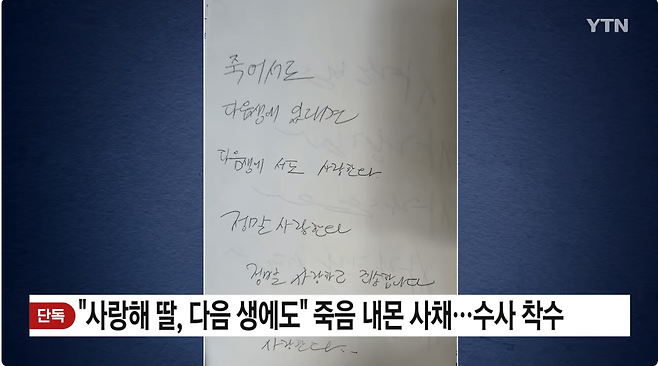 YTN
죽어서도
다음생에 있대면
다음생에 서도 사랑한다
정말 사랑한다
정말 사랑하고 죄송합니다
단독 "사랑해 딸, 다음 생에도" 죽음 내몬 사채…수사 착수
사랑한다..